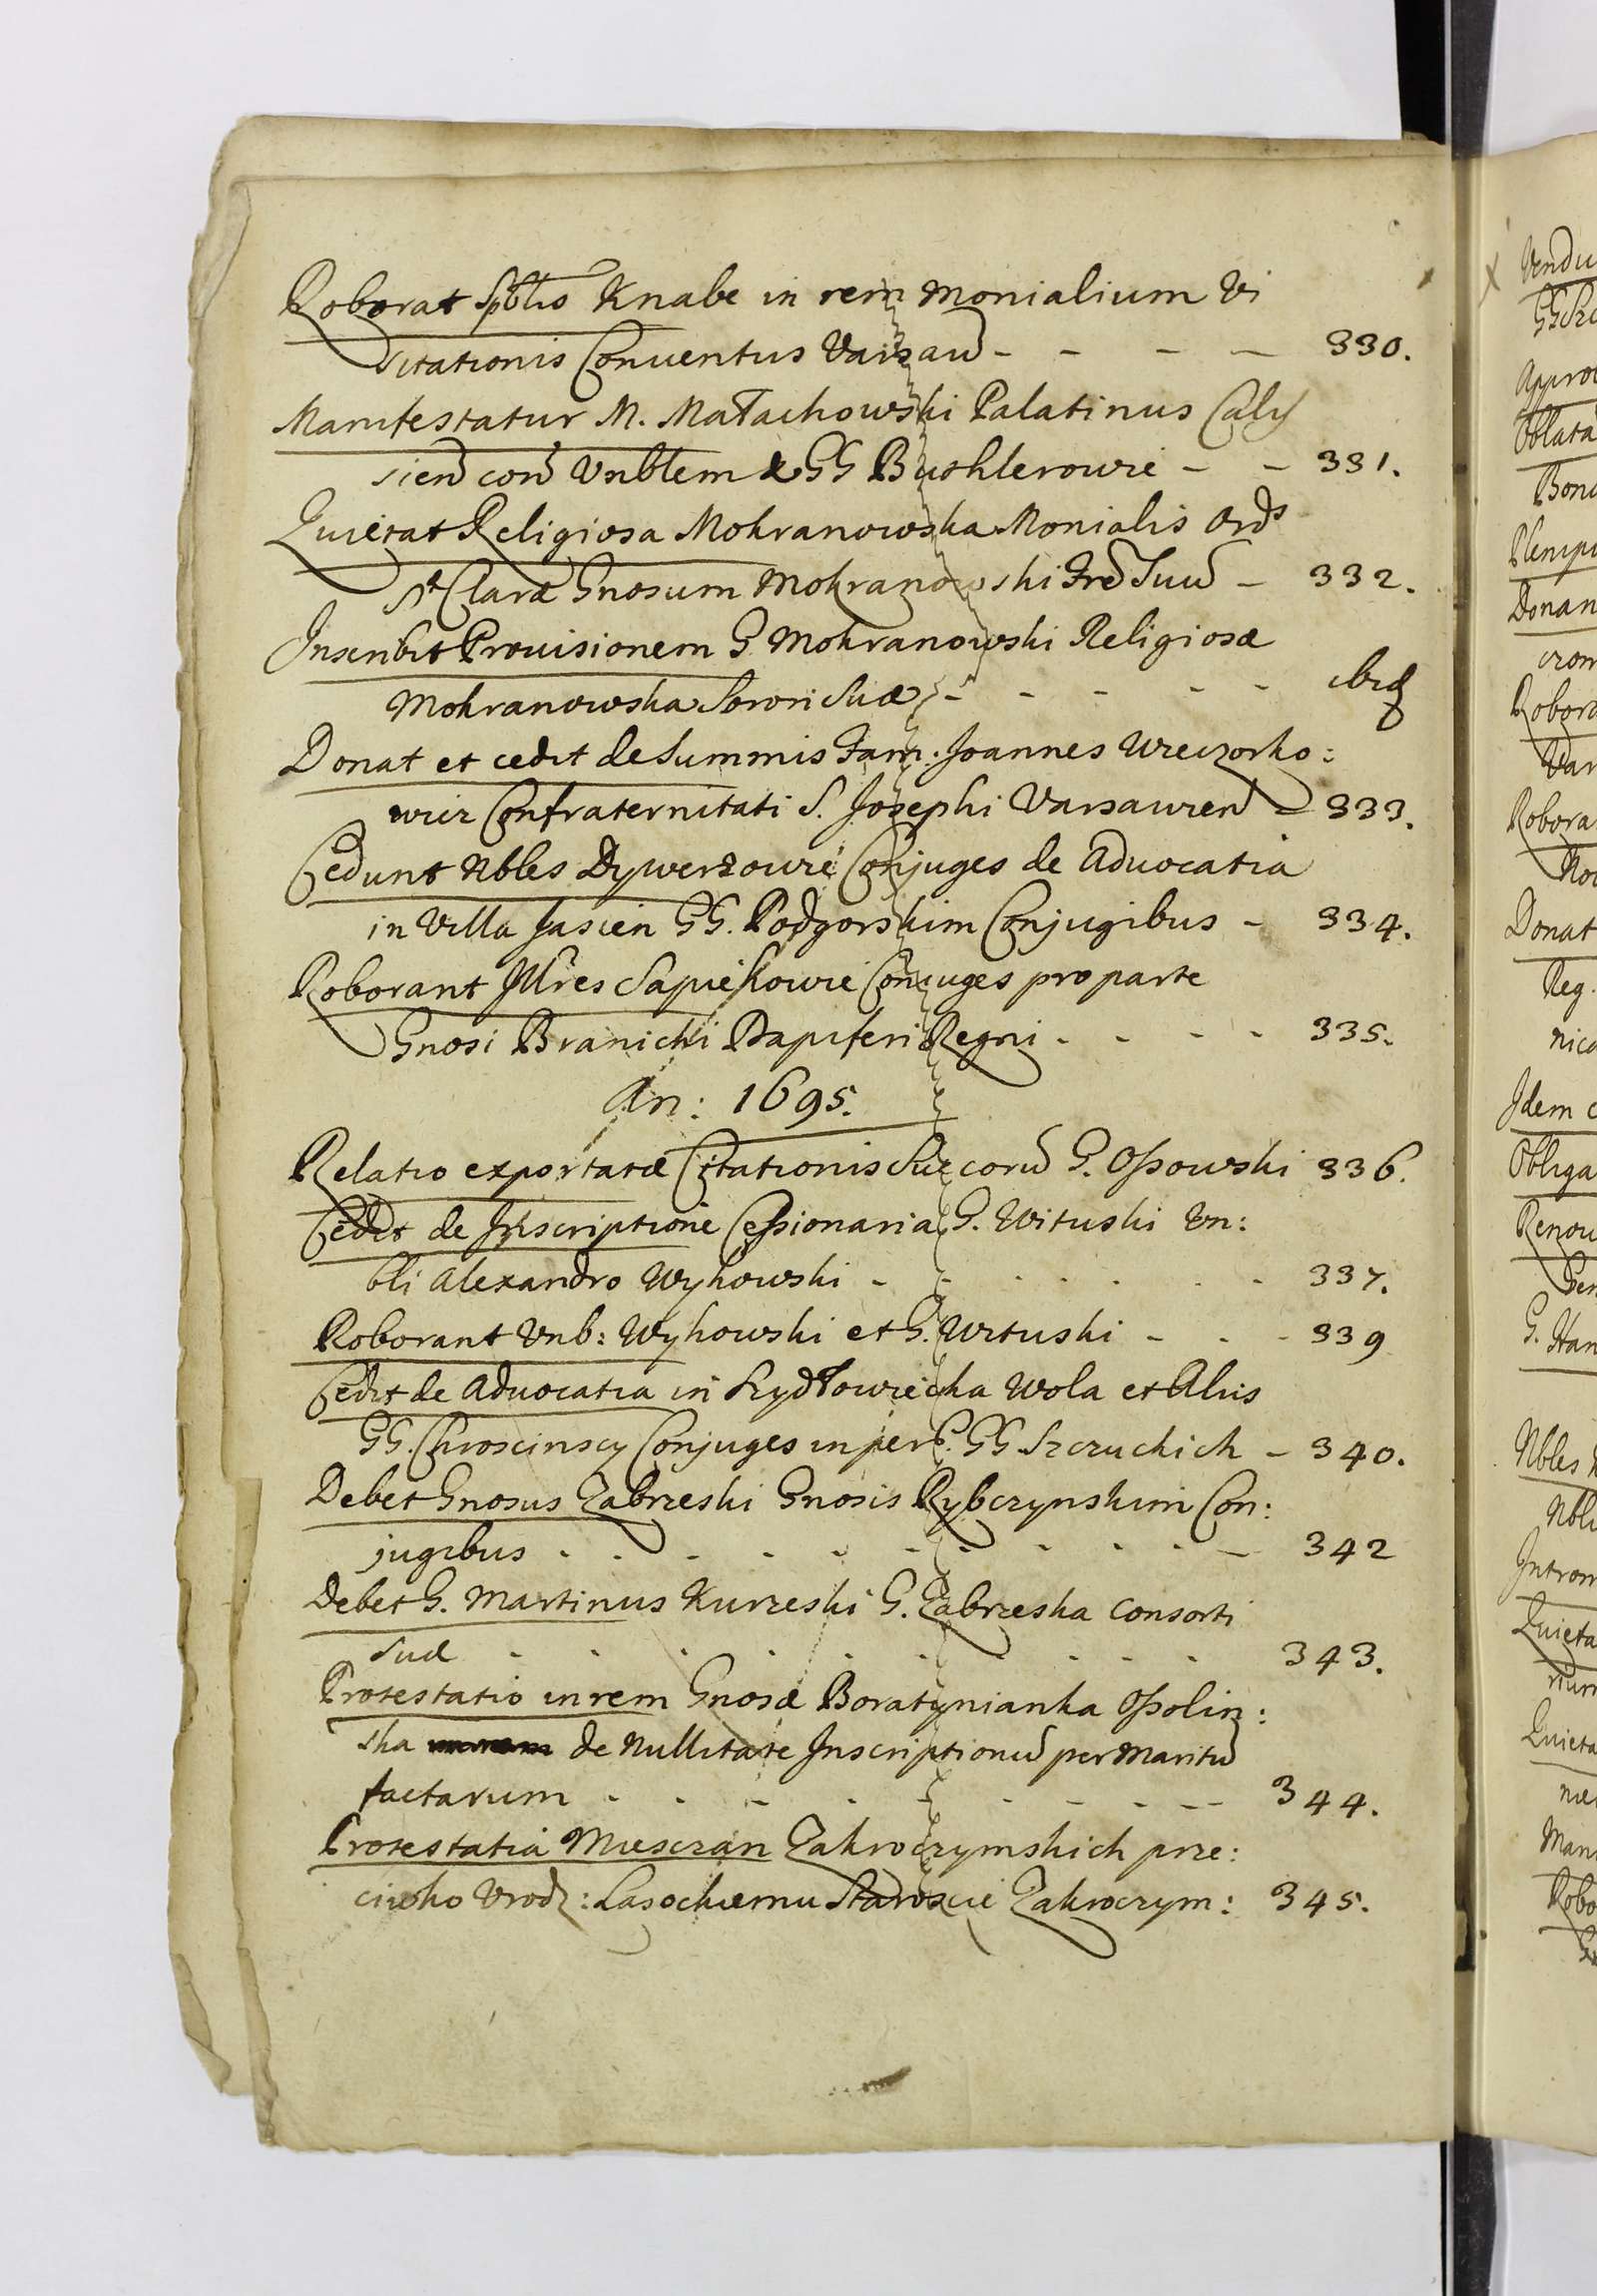 Roborat Spblis Knabe in rem Monialium Vi
sitationis Conuentus Varsau̅ - - - - 330.
Manifestatur M. Małachowski Palatinus Calis
sien̅ con̅ Vnblem & GG Bushlerowie - - 331.
Quietat Religiosa Mokranowska Monialis Ords
St Claræ Gnosum Mokranowski Fre̅ Suu̅ - 332.
Inscribit Prouisionem G Mokranowski Religiosæ
Mokranowska Sorori Suæ - - - - - ibid
Donat et cedit de Summis Fam: Joannes Wieczorko:
wicz Confraternitati S. Josephi Varsauien̅ - 333.
Cedunt Nbles Dywerzowie Conjuges de Aduocatia
in Villa Jasien GG. Podgorskim Conjugibus - 334.
Roborant Illres Sapiehowie Conjuges pro parte
Gnosi Branicki Dapiferi Regni - - - - 335.
An: 1695.
Relatio exportatæ Citationis Succoru̅ G. Ossowski 336.
Cedit de Inscriptione Cessionaria G. Wituski Vn:
bli Alexandro Wyhowski - - - - - - 337.
Roborant Vnb: Wyhowski et G. Wituski - - - 339
Cedit de Aduocatia in Szydłowiecka Wola et Aliis
GG. Chroscinscy Conjuges in per̅s. GG Szczuckich - 340.
Debet Gnosus Zabrzeski Gnosis Rybczynskim Con:
jugibus - - - - - - - - - - 342
Debet G. Martinus Kurzeski G. Zabrzeska Consorti
Suæ - - - - - - - - - 343.
Protestatio in rem Gnosæ Boratynianka Ossolin:
ska de Nullitate Inscriptionu̅ per Maritu̅
factarum - - - - - - - - - 344.
Protestatia Miesczan Zakroczymskich prze:
ciwko Vrodz: Lasockiemu Staroscie Zakroczym: 345.